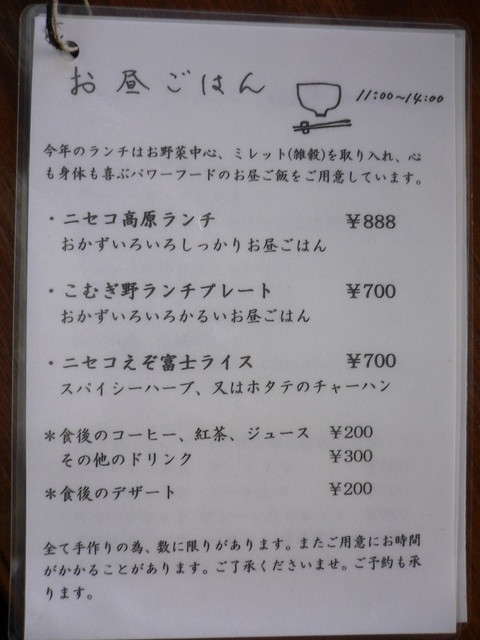 お昼ごはん 11:00~14:00
今年のランチはお野菜中心、ミレット(雑穀)を取り入れ、心
も身体も喜ぶパワーフードのお昼ご飯をご用意しています。
・ニセコ高原ランチ ￥888
おかずいろいろしっかりお昼ごはん
・こむぎ野ランチプレート ￥700
おかずいろいろかるいお昼ごはん
・ニセコえぞ富士ライス ￥700
スパイシーハーブ、又はホタテのチャーハン
＊食後のコーヒー、紅茶、ジュース ￥200
その他のドリンク ￥300
＊食後のデザート ￥200
全て手作りの為、数に限りがあります。またご用意にお時間
がかかることがあります。ご了承くださいませ。ご予約も承
ります。